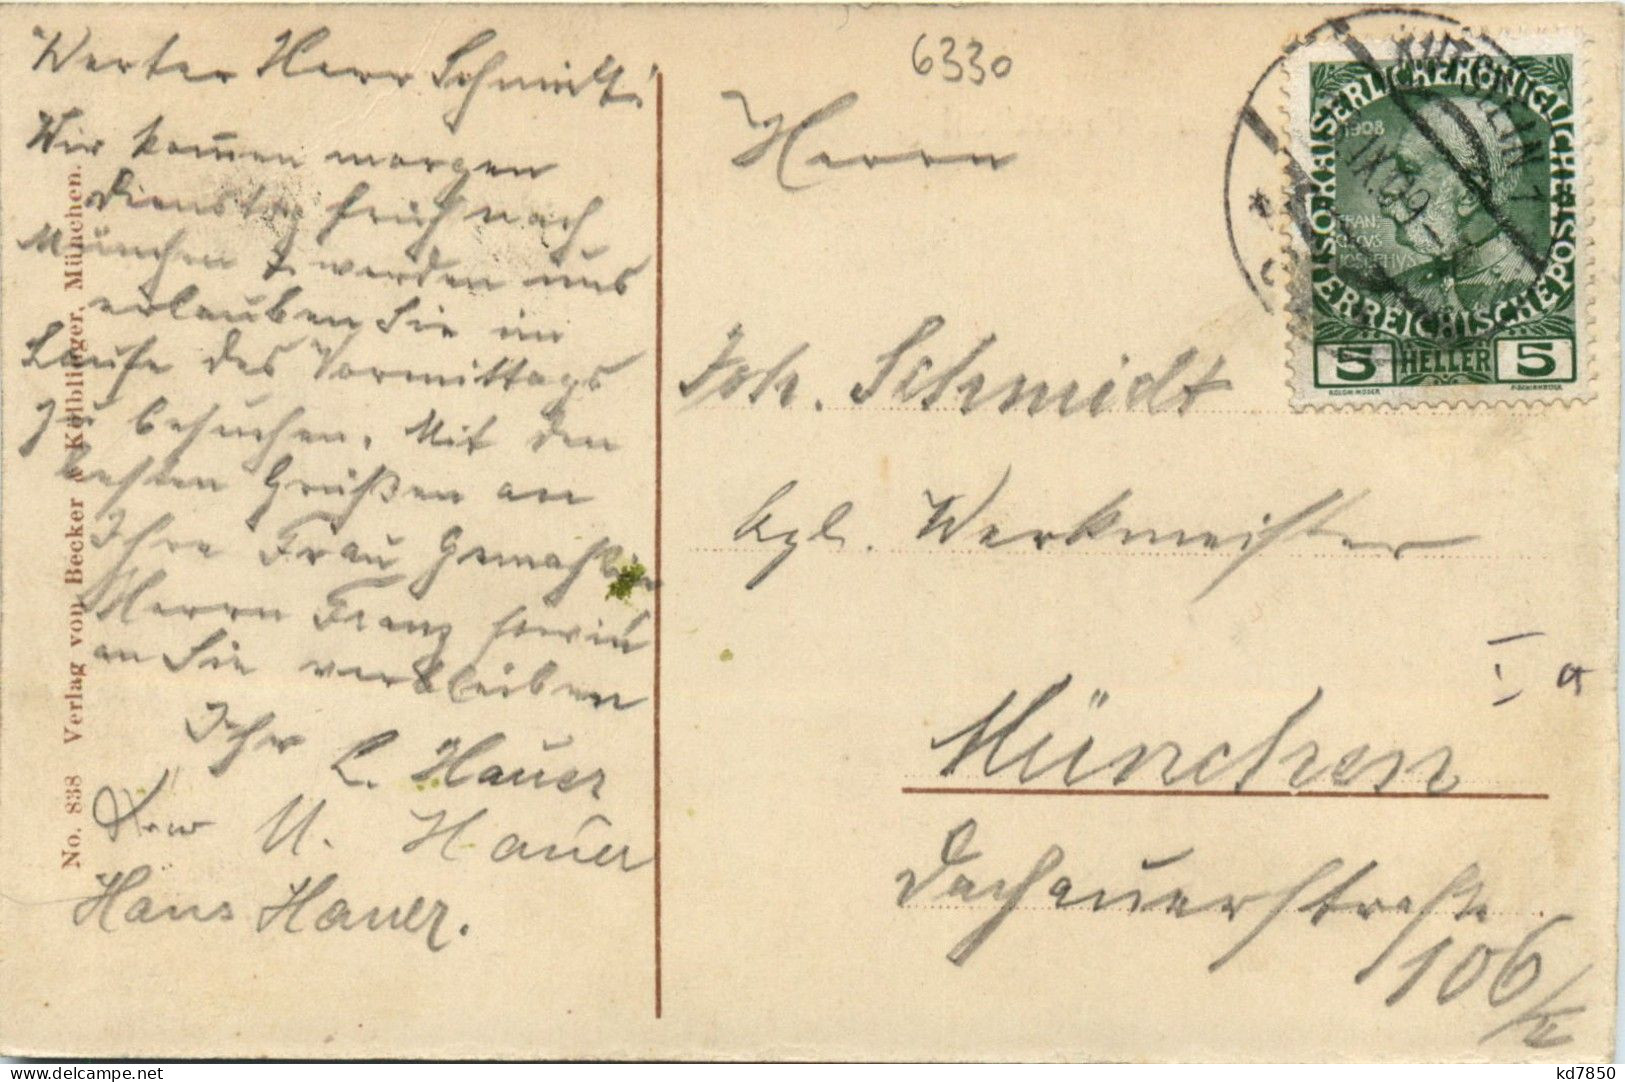 Werter Herr Schmidt!
Wir kom̅en morgen
Dienstag früh nach
München u. werden uns
erlauben Sie im
Laufe des Vormittags
zu besuchen. Mit den
besten Grüßen an
Ihre Frau Gemahlin
Herrn Franz sowie
an Sie verbleiben
Ihr L. Hauer
Frau M. Hauer
Hans Hauer.
No. 838 Verlag von Becker & Kölblinger, München.
6330
Herrn
Joh. Schmidt
kgl. Werkmeister
München
Dachauerstraße
106/II
I a
KAISERLICHE KÖNIGLICHE ÖSTERREICHISCHE POST
1908
FRAN-
CISCVS
IOSEPHVS
5 HELLER 5
KOLOM. MOSER
F. SCHIRNBÖCK
KUFSTEIN 1
IX. 09
kd7850